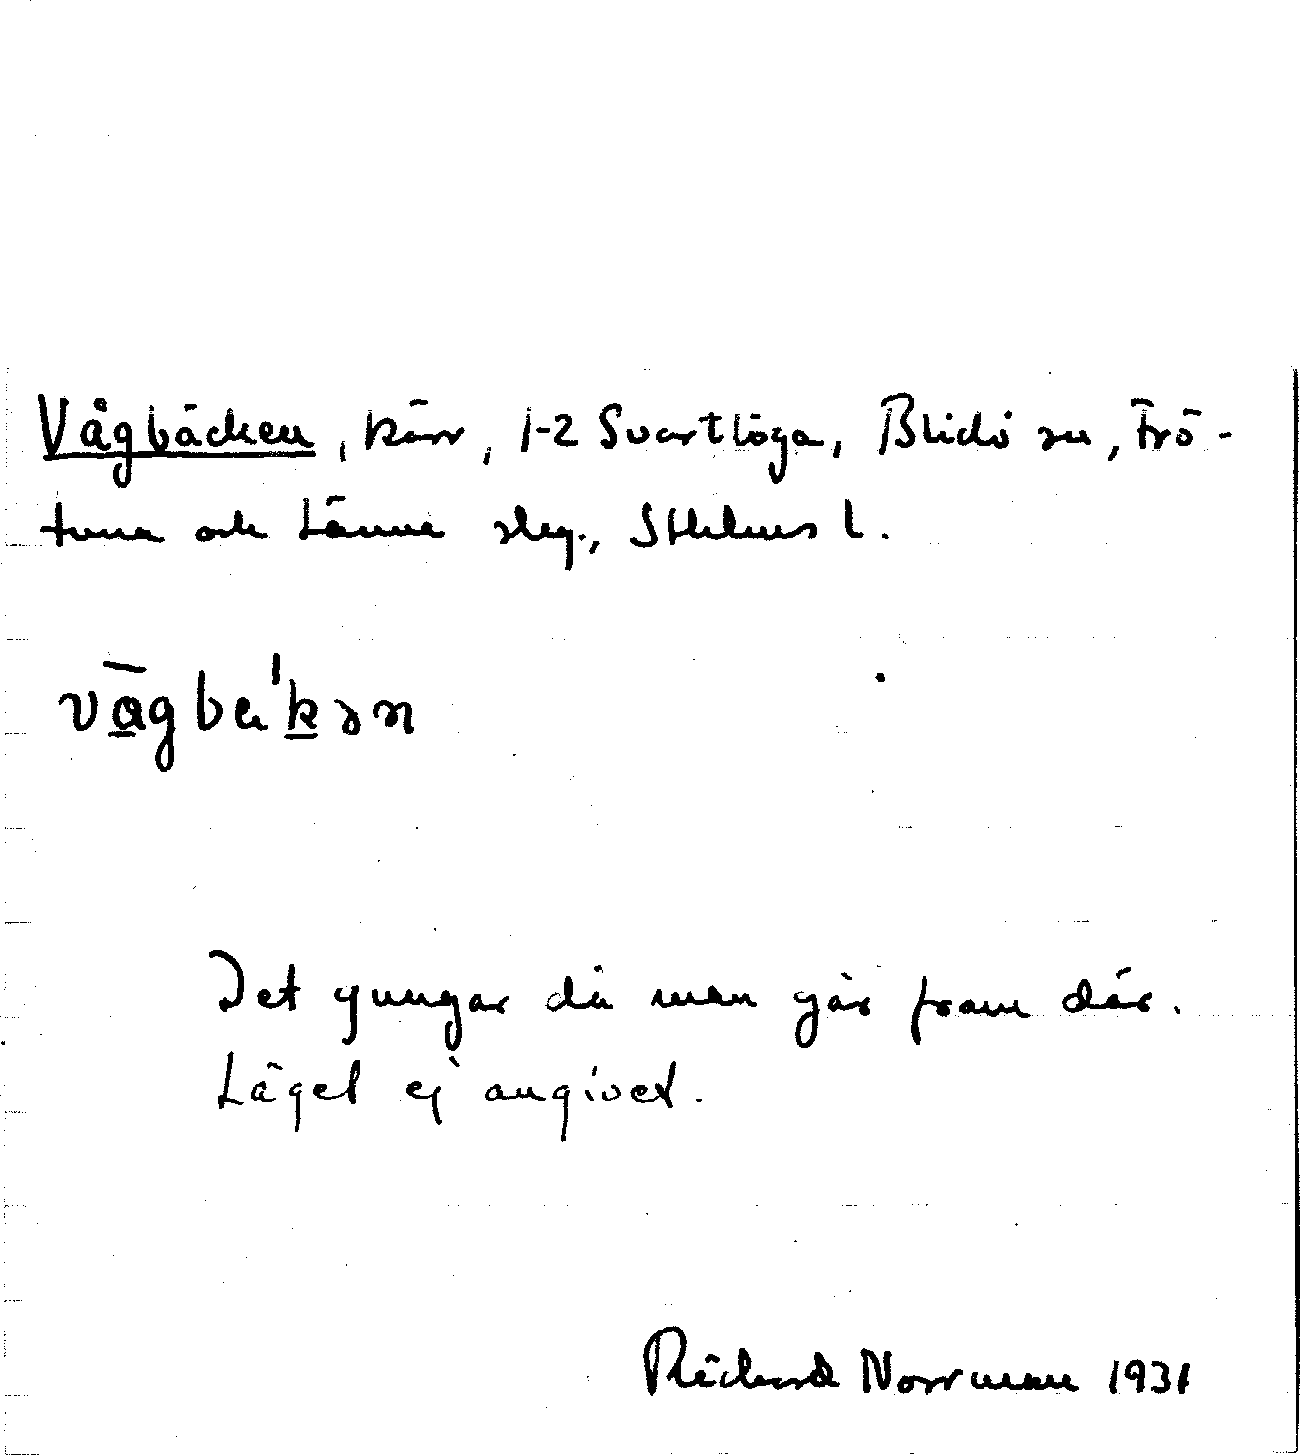 Vågbäcken, kärr, 1-2 Svartlöga, Blidö sn, Frö-
tuna och Länna slg., Sthlms l.
vāgbɛ'kən
Det gungar då man går fram där.
Läget ej angivet.
Richard Norrman 1931